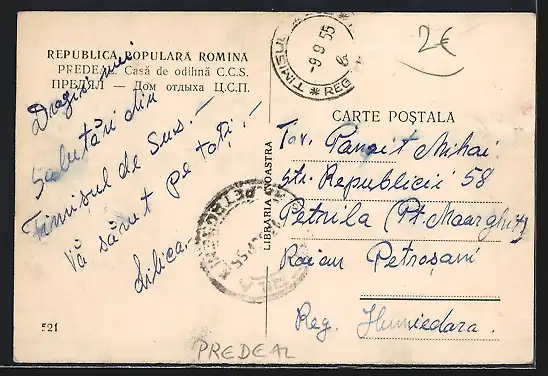 REPUBLICA POPULARA ROMINA
PREDEAL Casă de odihnă C.C.S.
ПРЕДЯЛ — Дом отдыха Ц.С.П.
Dragii mei
Salutări din
Timișul de Sus. –
Vă sărut pe toți. –
Lilica.
521
LIBRARIA NOASTRA
TIMISUL
-9 9 55
REG
2€
CARTE POȘTALA
Tov. Panait Mihai
Str. Republicii 58
Petrila
Raion Petroșani
Reg. Hunedoara.
PETRILA
PREDEAL